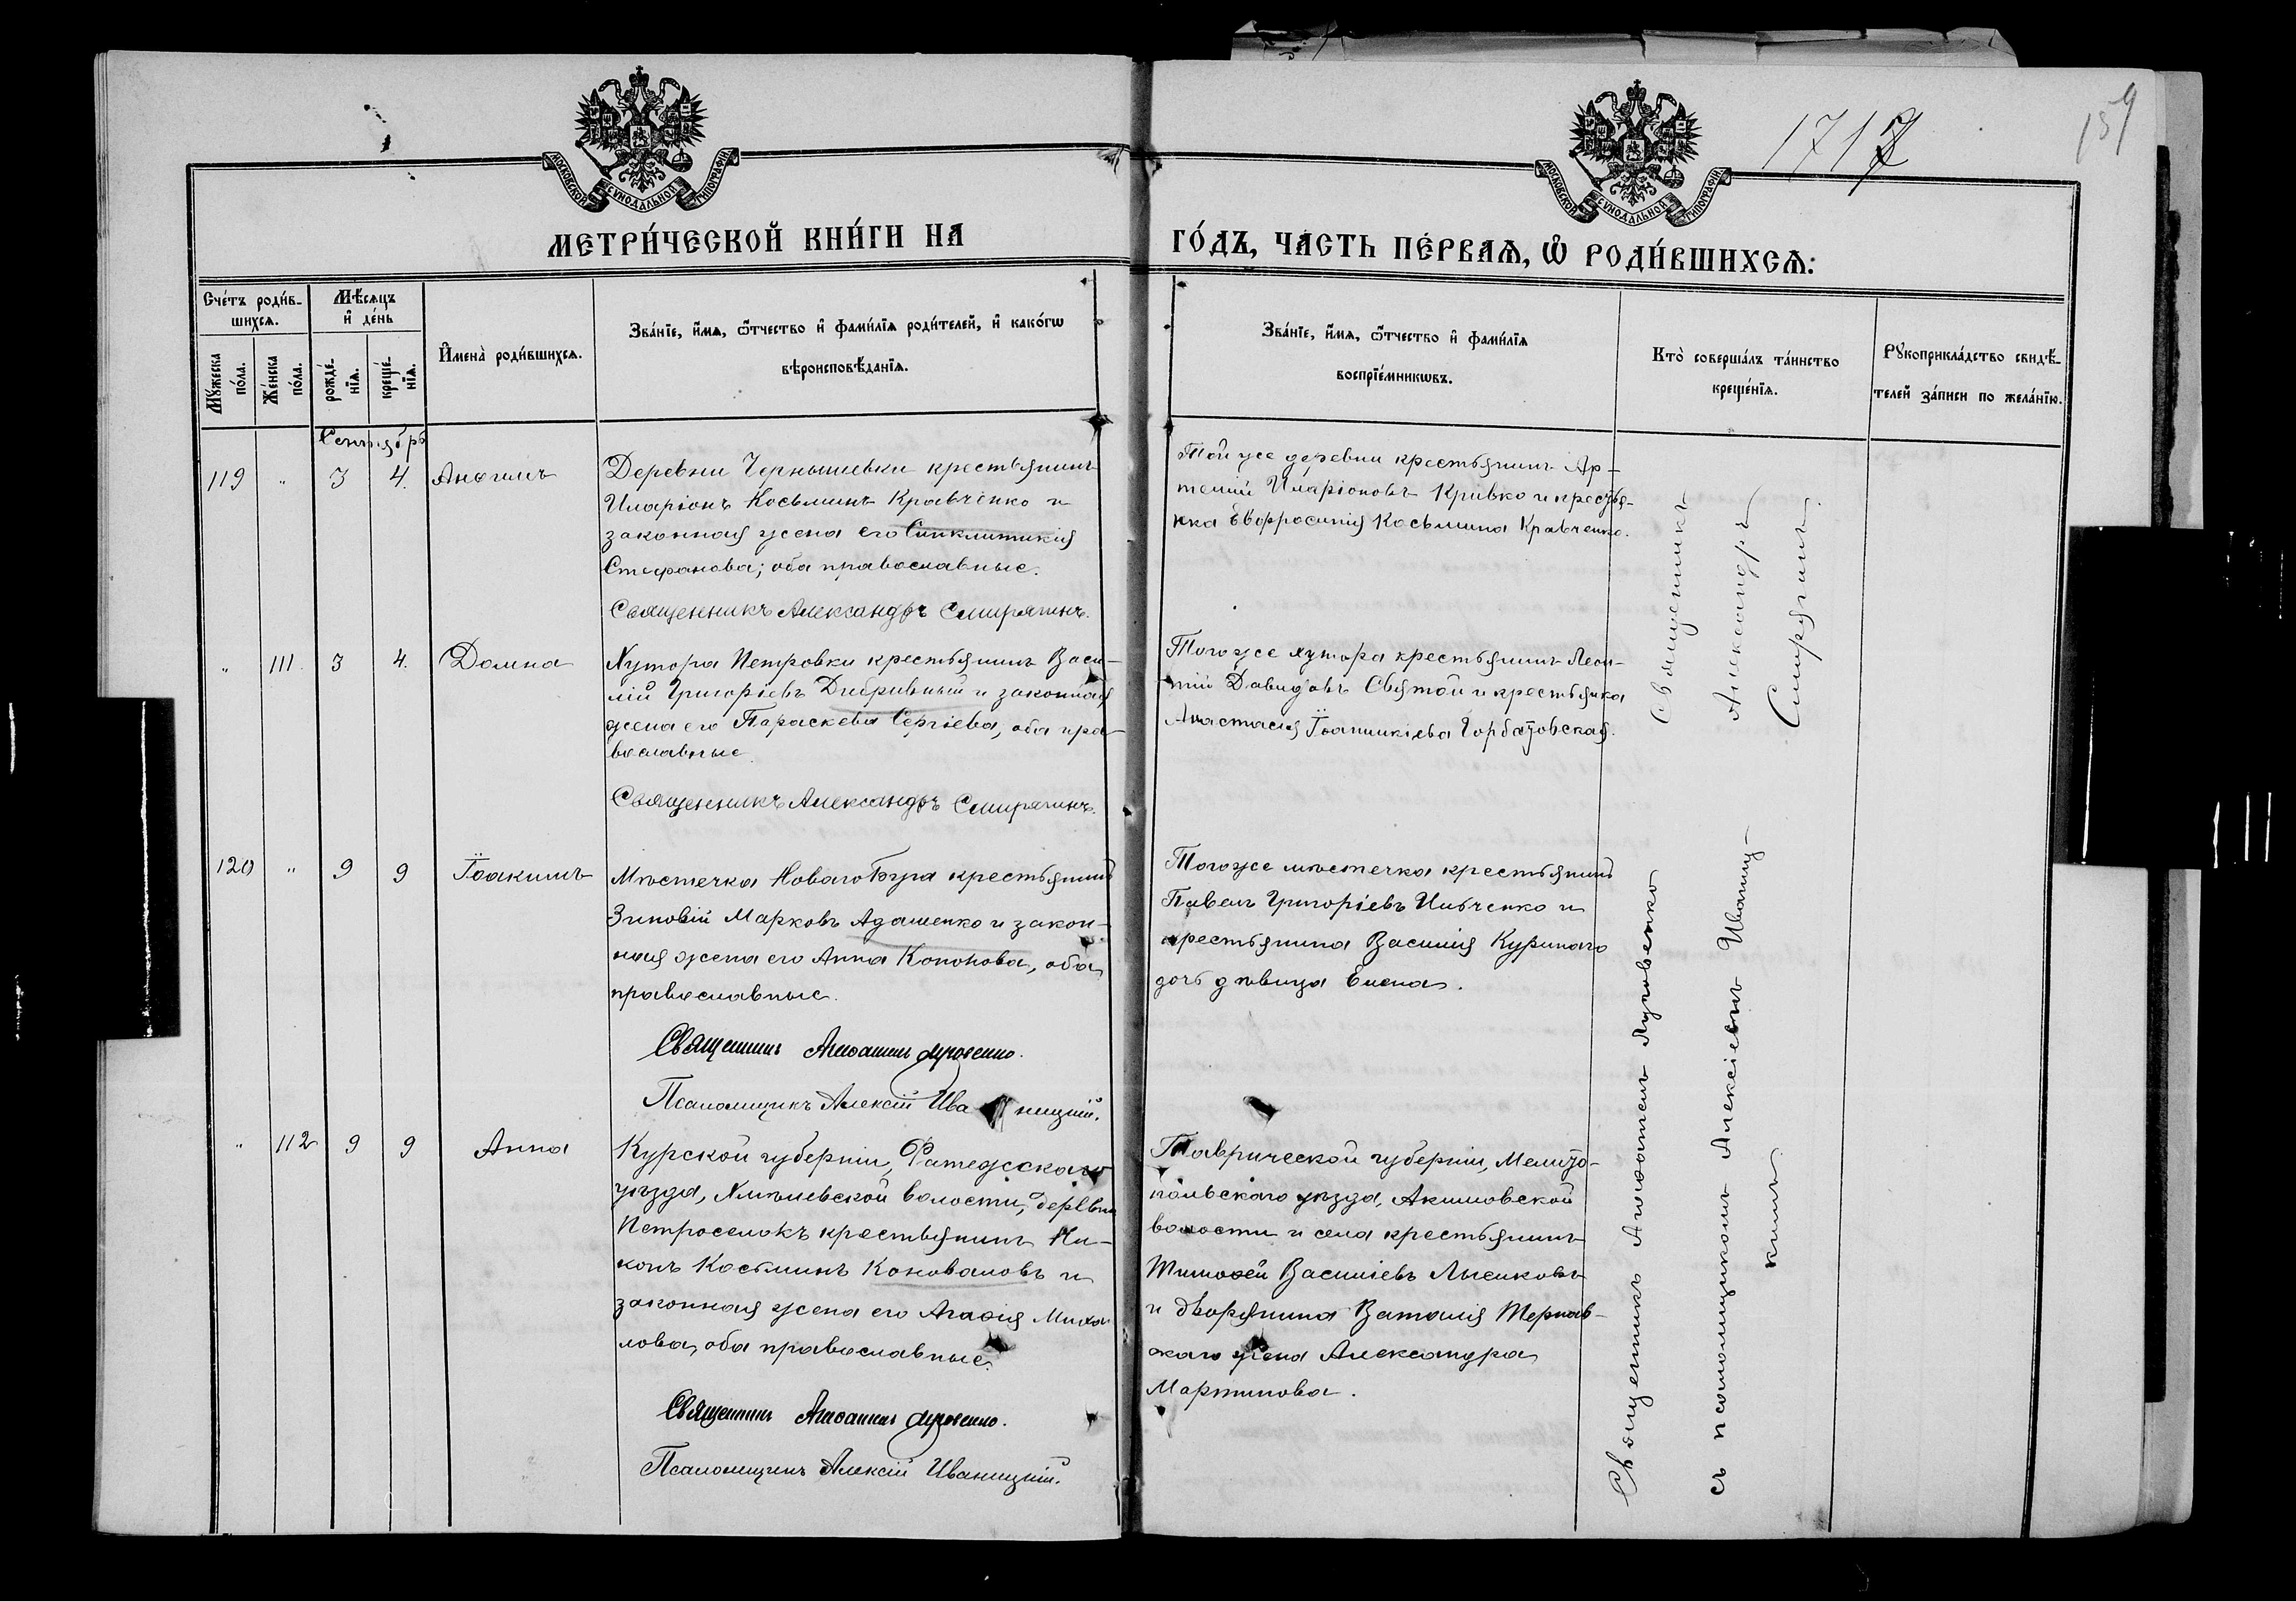 1717
159
МОСКОВСКОЙ СѴНОДАЛЬНОЙ ТИПОГРАФІИ
МОСКОВСКОЙ СѴНОДАЛЬНОЙ ТИПОГРАФІИ
МЕТРИ́ЧЕСКОЙ КНИ́ГИ НА
ГО́ДЪ, ЧА́СТЬ ПЕ́РВАѦ, Ѽ РОДИ́ВШИХСѦ:
Сче́тъ роди́в-
шихсѧ.
Мꙋ́жеска по́ла.
Же́нска по́ла.
Мѣ́сѧцъ
и҆ де́нь
рожде́-
нїѧ.
креще́-
нїѧ.
И҆мена̀ роди́вшихсѧ.
Зва́нїе, и҆́мѧ, ѻ҆́тчество и҆ фами́лїѧ роди́телей, и҆ како́гѡ
вѣроисповѣ́данїѧ.
Зва́нїе, и҆́мѧ, ѻ҆́тчество и҆ фами́лїѧ
воспрїе́мникѡвъ.
Кто̀ соверша́лъ та́инство
креще́нїѧ.
Рꙋкоприкла́дство свидѣ́-
телей за́писи по жела́нїю.
Сентябрь
119 " 3 4. Анѳимъ
Деревни Чернышевки крестьянинъ
Иларіонъ Косьминъ Кравченко и
законная жена его Синклитикія
Стефанова; оба православные.
Священникъ Александръ Смирягинъ.
Той же деревни крестьянинъ Ар-
темій Иларіоновъ Кривко и крестья-
нка Евфросинія Косьмина Кравченко.
" 111. 3 4. Домна
Хутора Петровки крестьянинъ Васи-
лій Григоріевъ Дибривный и законная
жена его Параскева Сергіева, оба пра-
вославные
Священникъ Александръ Смирягинъ.
Того же хутора крестьянинъ Леон-
тій Давидовъ Святой и крестьянка
Анастасія Іоанникіева Горбатовская.
Священникъ
Александръ
Смирягинъ.
120 " 9 9 Іоакимъ
Мѣстечка Новаго Буга крестьянинъ
Зиновій Марковъ Адаменко и закон-
ная жена его Анна Кононова, оба
православные.
Священникъ Агаѳангелъ Луговенко.
Псаломщикъ Алексій Иваницкій.
Того же мѣстечка крестьянинъ
Павелъ Григоріевъ Ильченко и
крестьянина Василія Куринаго
дочь дѣвица Елена.
" 112 9 9 Анна
Курской губерніи, Фатежскаго
уѣзда, Хмѣлевской волости, деревни
Петроселокъ крестьянинъ Ни-
конъ Косьминъ Коноваловъ и
законная жена его Агаѳія Михаи
лова, оба православные.
Священникъ Агаѳангелъ Луговенко.
Псаломщикъ Алексій Иваницкій.
Таврической губерніи, Мелито-
польскаго уѣзда, Акимовской
волости и села крестьянинъ
Тимоѳей Василіевъ Лысенковъ
и дворянина Виталія Тернав-
скаго жена Александра
Мартинова.
Священникъ Агаѳангелъ Луговенко
съ псаломщикомъ Алексіемъ Иваниц-
кимъ.